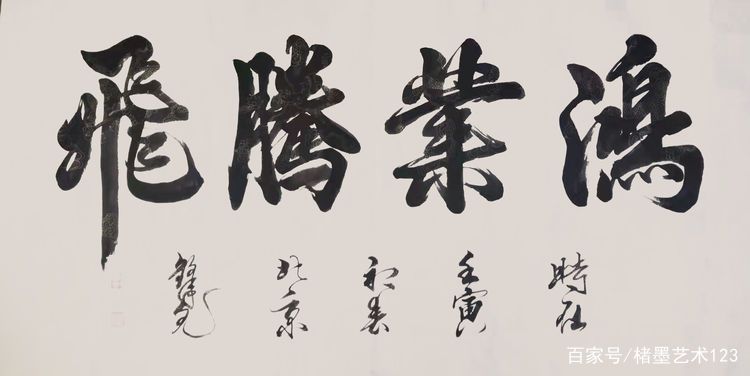 鴻業騰飛
時在壬寅初春北京
百家号/楮墨艺术123